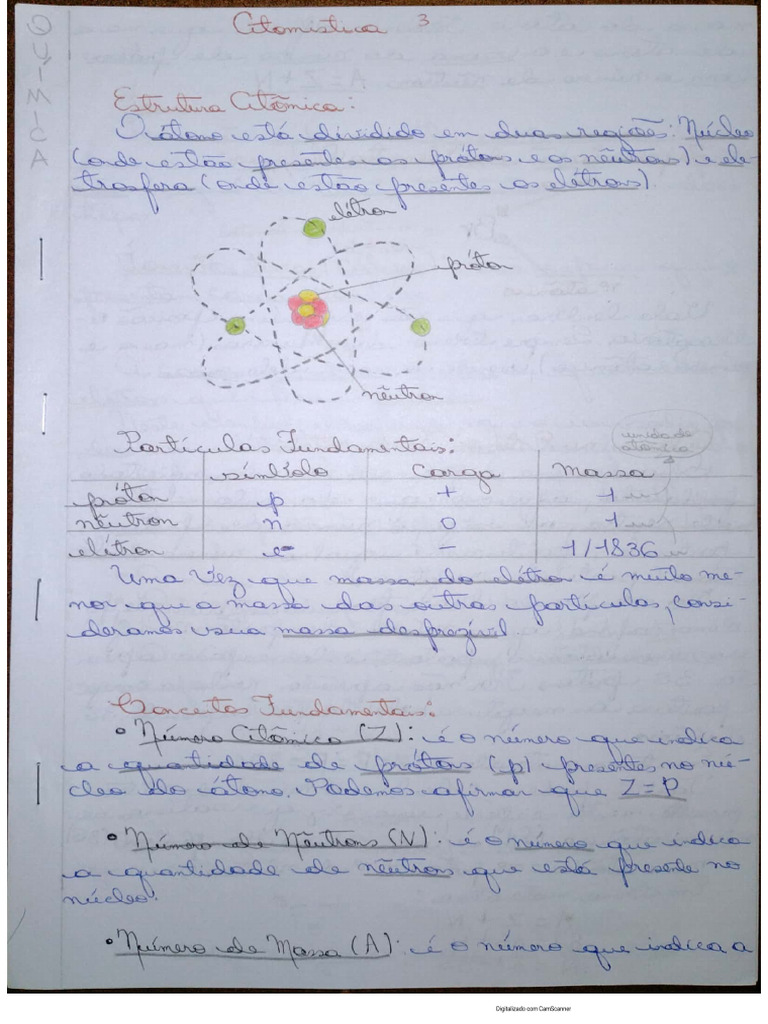 QUÍMICA
Atomística 3
Estrutura Atômica:
O átomo está dividido em duas regiões: Núcleo
(onde estão presentes os prótons e os nêutrons) e ele-
trosfera (onde estão presentes os elétrons).
elétron
próton
nêutron
Partículas Fundamentais:
unidade
atômica
símbolo Carga Massa
próton p + 1 u
nêutron n 0 1 u
elétron e- - 1/1836 u
Uma vez que massa do elétron é muito me-
nor que a massa das outras partículas, consi-
deramos sua massa desprezível.
Conceitos Fundamentais:
• Número Atômico (Z): é o número que indica
a quantidade de prótons (p) presentes no nú-
cleo do átomo. Podemos afirmar que Z=P
• Número de Nêutrons (N): é o número que indica
a quantidade de nêutrons que está presente no
núcleo.
• Número de Massa (A): é o número que indica a
Digitalizado com CamScanner